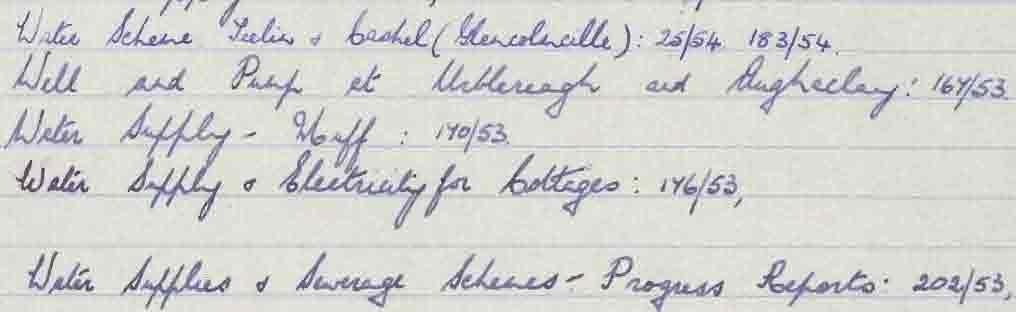 Water Scheme Teelin & Cashel (Glencolmcille): 25/54 183/54.
Well and Pump at Urblereagh and Aughaclay: 167/53.
Water Supply - Muff: 170/53.
Water Supply & Electricity for Cottages: 176/53,
Water Supplies & Sewerage Schemes - Progress Reports: 202/53,